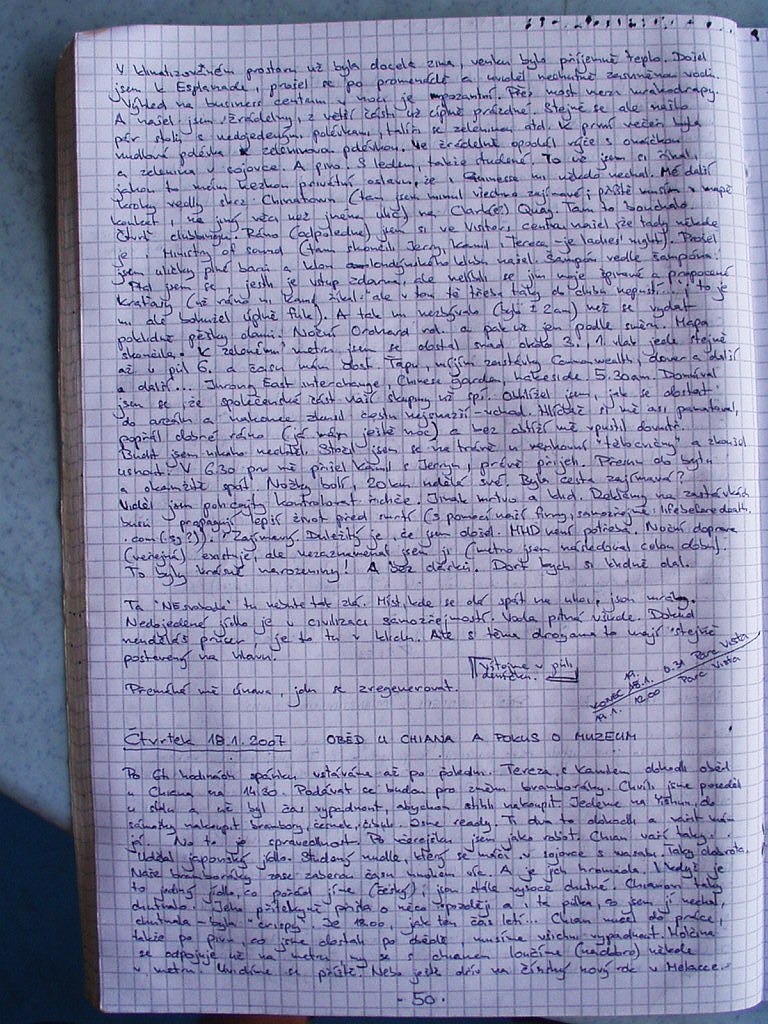 V klimatizovaném prostoru už byla docela zima, venku bylo příjemné teplo. Dojel
jsem k Esplanade, projel se po promenádě a uviděl neohnutě
Výhled na business centrum v noci je Přes most mezi mrakodrapy.
A našel jsem žrádelny, z větší části už úplně prázdné. Stejně se ale našlo
pár stolů s nedojedenými polévkami, talíř se zeleninou atd. K první večeři byla
nudlová polévka zeleninovou polévkou. Ve žrádelně opodál rýže s omáčkou
a zelenina v sojovce. A pivo. S ledem, takže studené. To už jsem si říkal,
jakou to mám hezkou privátní oslavu, že i Guinnesse mi někdo nechal. Mé další
kroky vedly skrz Chinatown (tam jsem minul všechno zajímavé, příště musím v mapě
koukat i na jiný věci než jména ulic) na Clark(e) Quay. Tam to bouchalo.
Čtvrť clubbingu. Ráno (odpoledne) jsem si ve Visitors centru našel že tady někde
je i Ministry of Sound (tam skončili Jerry, Kamil i Tereza - je ladies' night). Prošel
jsem uličky plné barů a klon londýnského klubu našel. Šampón vedle šampóna.
Ptal jsem se, jestli je vstup zdarma, ale nelíbili se jim moje špinavé a propocené
kraťasy (už ráno mi Kamil říkal: ale v tom tě třeba taky do clubu nepustí...; to je
mi ale bohužel úplně fuk). A tak mi nezbývalo (bylo ± 2am) než se vydat
poklidně pěšky domů. Noční Orchard rd. a pak už jen podle směru. Mapa
skončila. K zelenému metru jsem se dostal snad okolo 3. 1. vlak jede stejně
až v půl 6. a času mám dost. Ťapu, míjím zastávky Commonwealth, Dover a další
a další... Jurong East interchange, Chinese garden, Lakeside. 5.30am. Domníval
jsem se, že společenská část naší skupiny už spí. Obhlížel jsem, jak se dostat
do areálu a nakonec zkusil cestu nejsnazší - vchod. Hlídač si mě asi pamatoval,
popřál dobré ráno (já mám ještě noc) a bez obtíží mě vpustil dovnitř.
Budit jsem nikoho nechtěl. Stočil jsem se na trávě u venkovní "tělocvičny" a zkoušel
usnout. V 6.30 pro mě přišel Kamil s Jerrym, právě přijeli. Přesun do bytu
a okamžitě spát. Nožky bolí, 20km udělá své. Byla cesta zajímavá?
Viděl jsem policajty kontrolovat řidiče. Jinak mrtvo a klid. Reklamy na zastávkách
busů propagují lepší život před smrtí (s pomocí naší firmy, samozřejmě: lifebeforedeath.
.com(.sg?)). Zajímavý. Důležitý je, že jsem došel. MHD není potřeba. Noční doprava
(veřejná) existuje, ale nezaznamenal jsem ji (metro jsem následoval celou dobu).
To byly krásné narozeniny! A bez dárků. Dort bych si klidně dal.
Ta "NEsvoboda" tu nebude tak zlá. Míst, kde se dá spát na ulici, jsou mraky.
Nedojedené jídlo je v civilizaci samozřejmostí. Voda pitná všude. Dokud
neuděláš průser, je to tu v klidu. Ale s těma drogama to mají stejně
postavený na hlavu.
Výstojme v půli
deníčku.
Přemáhá mě únava, jdu se zregenerovat.
KONEC 18.1. 0.31 Parc Vista
17.1. 12.00 Parc Vista
Čtvrtek 18.1.2007 OBĚD U CHIANA A POKUS O MUZEUM
Po 6h hodinách spánku vstáváme až po poledni. Tereza s Kamilem dohodli oběd
u Chiana na 14.30. Podávat se budou pro změnu bramboráky. Chvíli jsme poseděli
u stolu a už byl čas vypadnout, abychom stihli nakoupit. Jedeme na Yishun, do
samošky nakoupit brambory, česnek, cibuli. Jsme ready. Ti dva to oškrabali a vařit mám
já. No to je spravedlnost. Po včerejšku jsem jako robot. Chian vaří taky.
Udělal japonský jídlo. Studený nudle, který se máčí v sojovce s wasabi. Taky dobrota.
Naše bramboráky zase zaberou času mnohem víc. A je jich hromada. I když je
to jediný jídlo, co pořád jíme (český), jsou stále vysoce chutné. Chianovi taky
chutnalo. Jeho přítelkyně přišla o něco později a i ta půlka, co jsem jí nechal,
chutnala - byla "crispy". Je 18.00, jak ten čas letí... Chian musel do práce,
takže po pivu, co jsme dostali po obědě musíme všichni vypadnout. Holčina
se odpojuje už na metru, my se s Chianem loučíme (nadobro) někde
v metru. Uvidíme se příště. Nebo ještě dřív na čínský nový rok v Melacce.
- 50 -